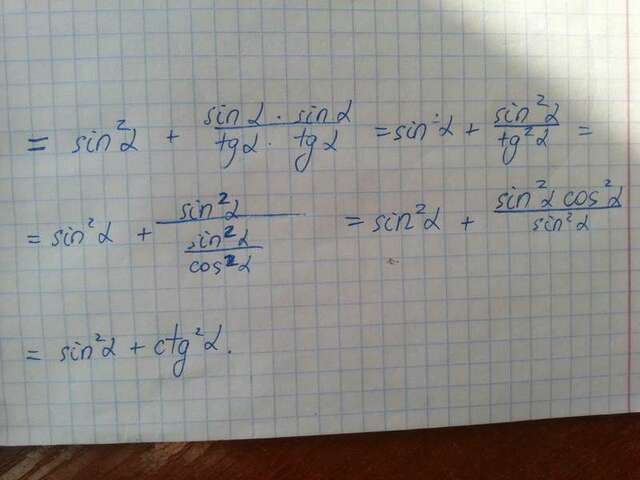 = sin²α + (sin α · sin α)/(tg α · tg α) = sin²α + sin²α/tg²α =
= sin²α + sin²α/(sin²α/cos²α) = sin²α + (sin²α cos²α)/sin²α
= sin²α + ctg²α.